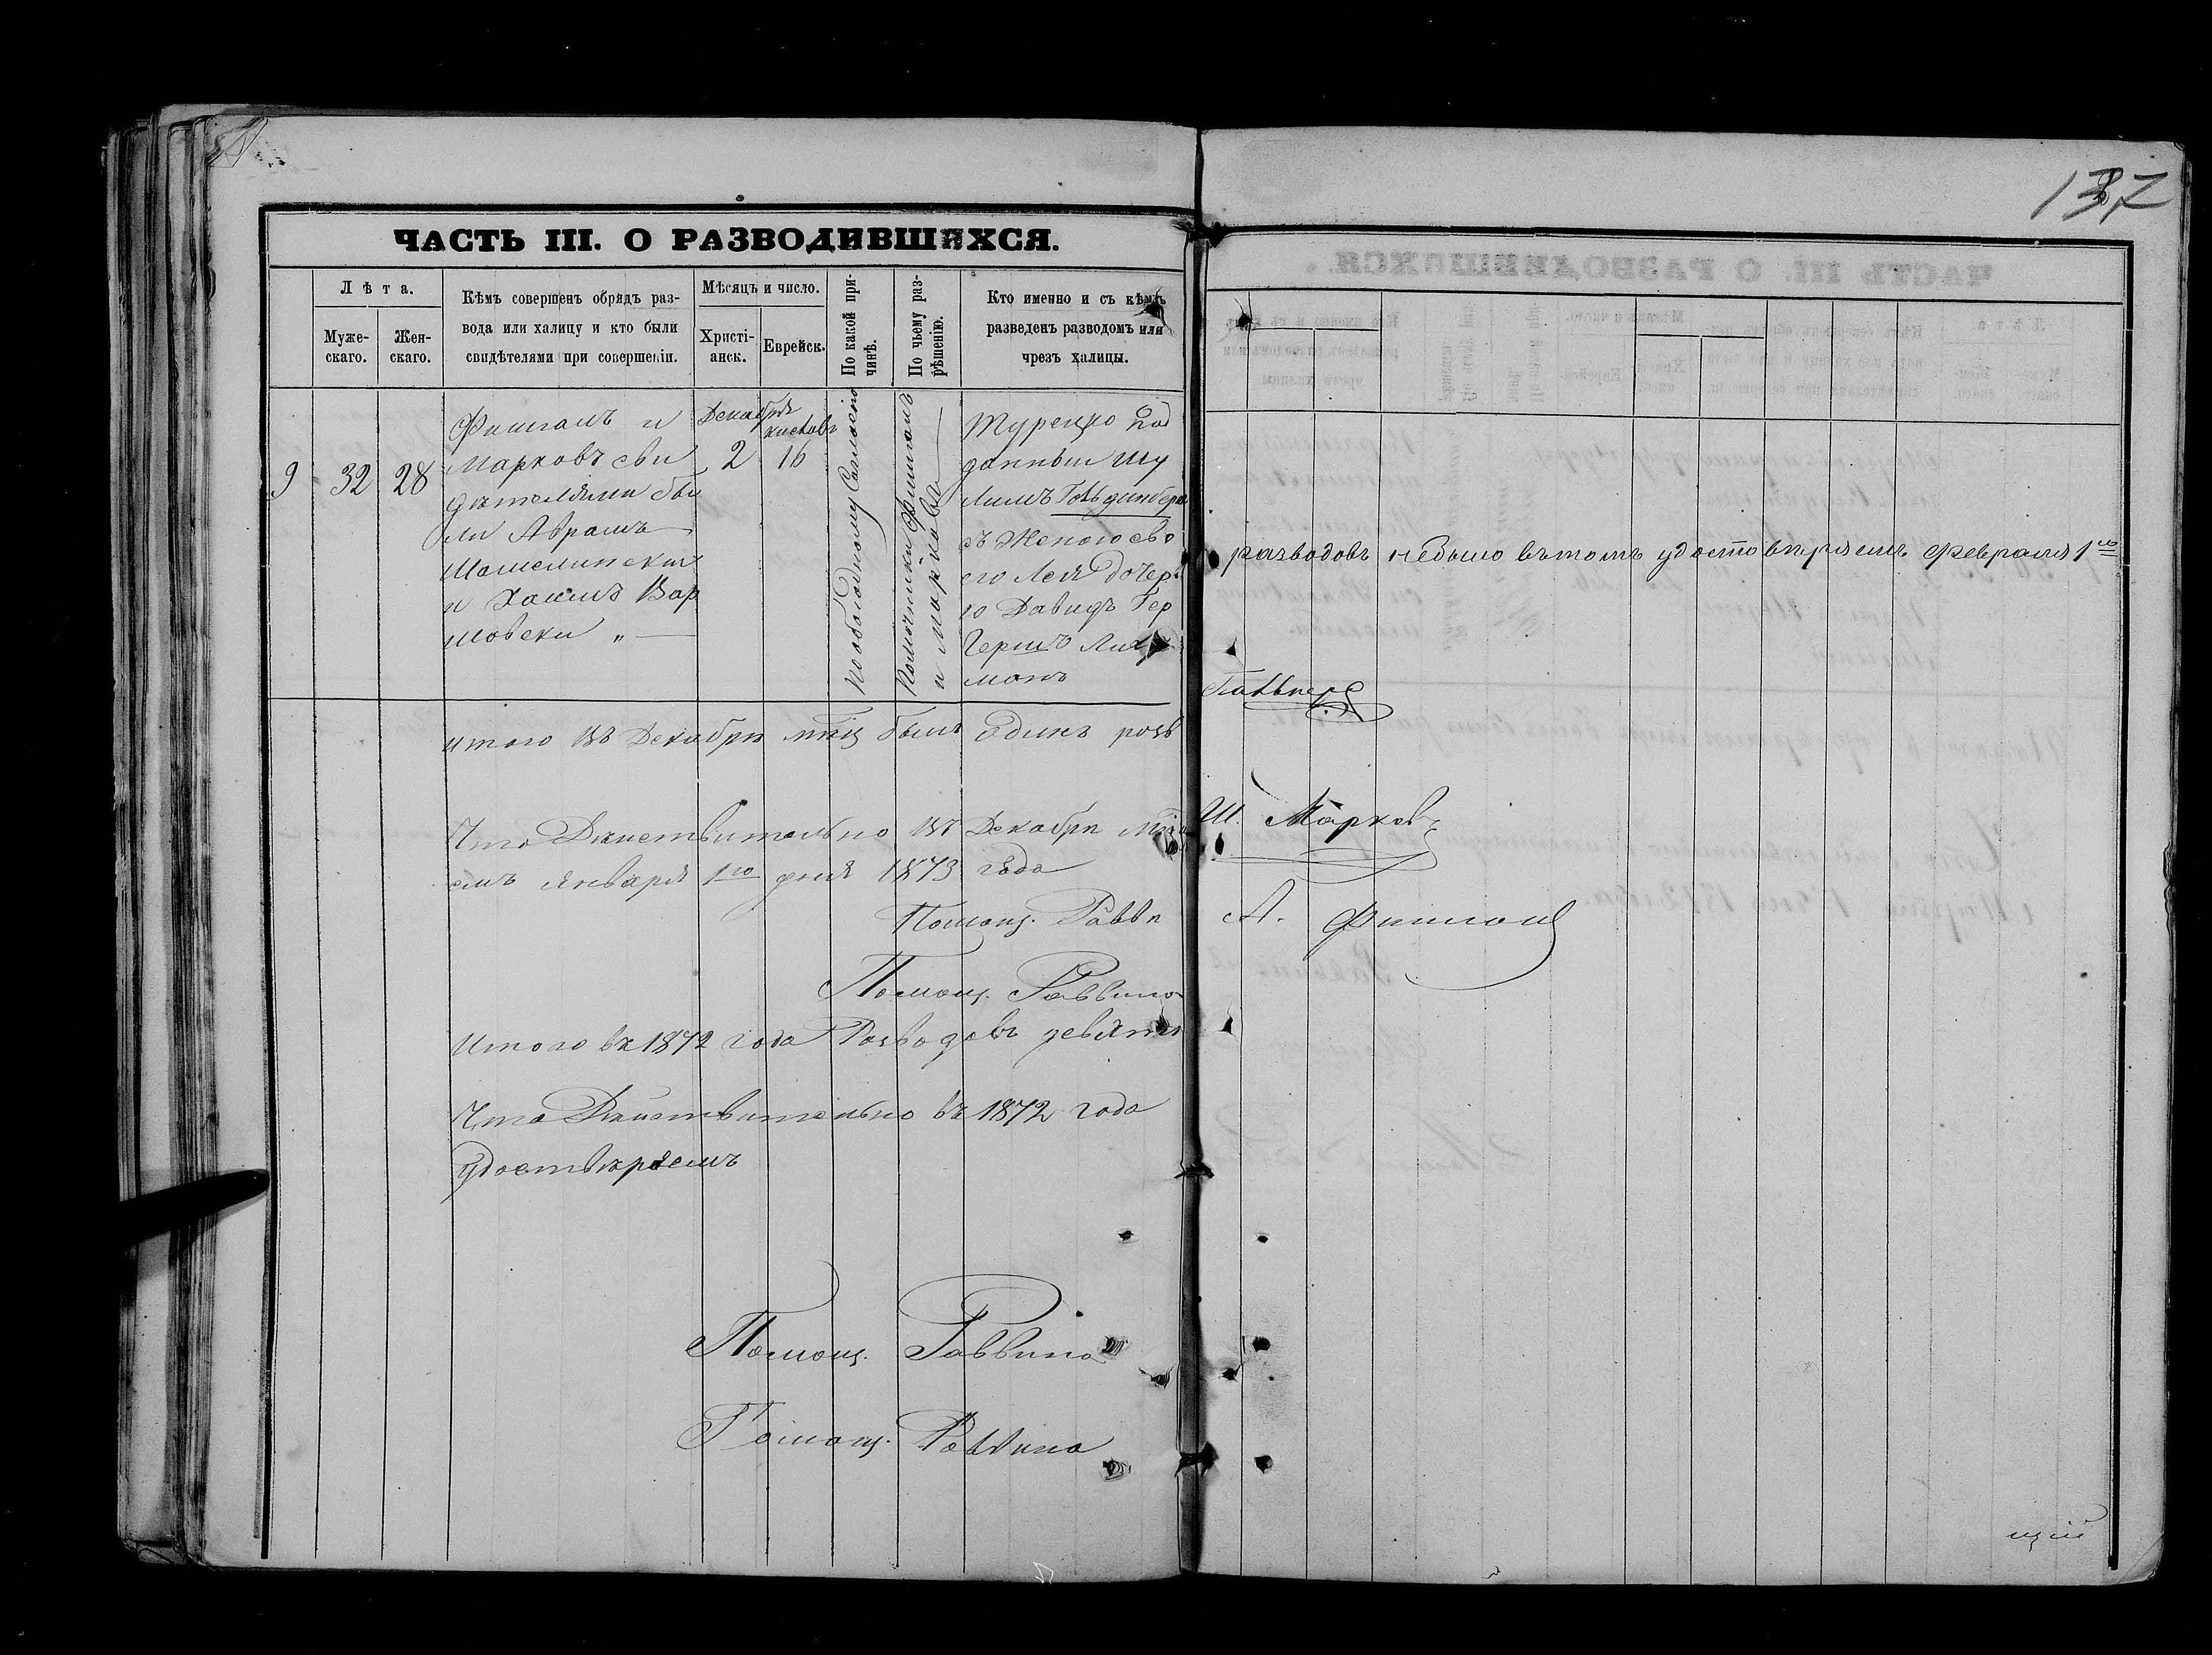 137
ЧАСТЬ III. О РАЗВОДИВШИХСЯ.
Лѣта.
Муже-
скаго.
Жен-
скаго.
Кѣмъ совершенъ обрядъ раз-
вода или халицу и кто были
свидѣтелями при совершеніи.
Мѣсяцъ и число.
Христі-
анск.
Еврейск.
По какой при-
чинѣ.
По чьему раз-
рѣшенію.
Кто именно и съ кѣмъ
разведенъ разводомъ или
чрезъ халицы.
9
32
28
Фишманъ и
Марковъ сви
дѣтелями бы
ли Абрамъ
и Хаимъ Вар
шовски „
Декабря
2
16
По обоюдному Согласію
Помочники Фишманъ
и Маркова
Турецко Под
данный Шу
лимъ Гольдинберг
съ Женою сво
его Лея дочер
ю Давидъ Гер
Гершъ
манъ
итого въ Декабрѣ мцѣ былъ одинъ розв
Что Дѣйствительно въ Декабрѣ
емъ января 1го дня 1873 года
Помощ. Равви
Помощ. Раввина
Итого въ 1872 года Розводовъ девять
Что Дѣйствительно въ 1872 года
удоствѣряемъ
Помощ. Раввина
Помощ. Раввина
разводовъ небыло вътомъ удостовѣряемъ февраля 1го
Ш. Марковъ
А. Фишманъ
щій